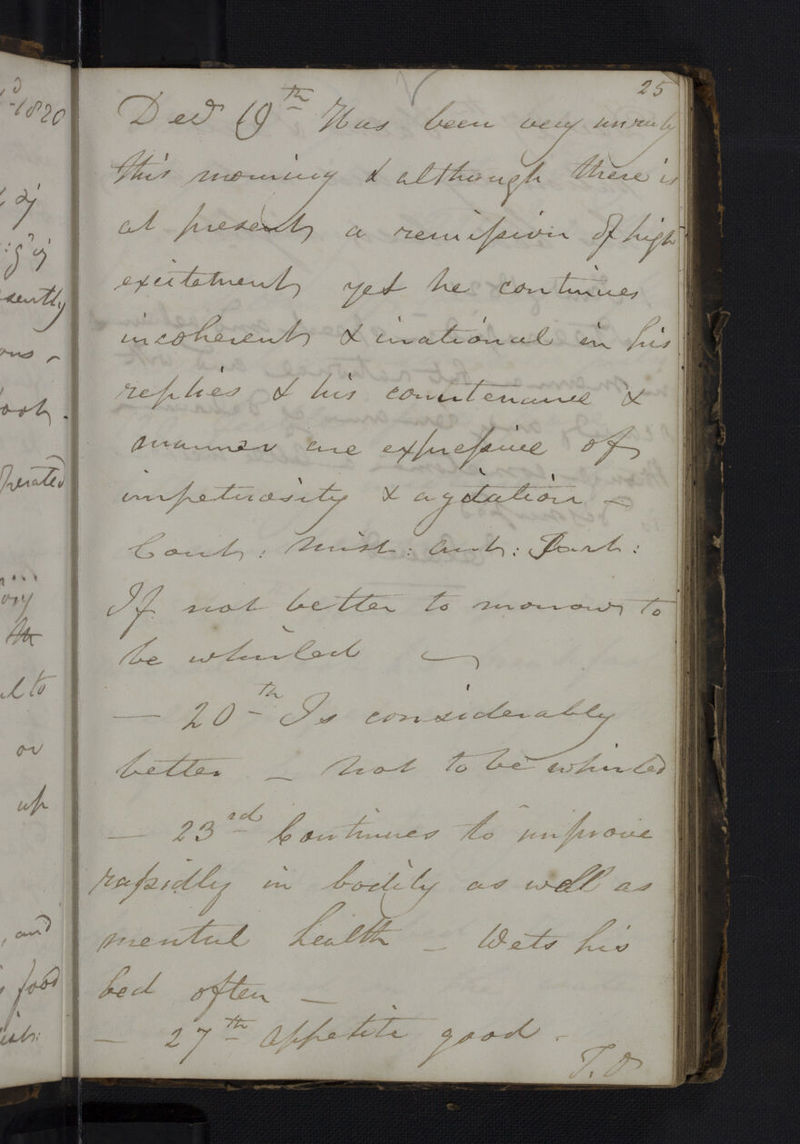 25
Decr 19th Has been very unruly
this morning & although there is
at present a remission of high
excitement yet he continues
incoherent & irrational in his
replies & his countenance &
manner are expressive of
impetuosity & agitation –
Cont: Mist: Ant: Tart:
If not better to morrow to
be whirled
— 20th Is considerably
better – Not to be whirled
— 23rd Continues to improve
rapidly in bodily as well as
mental health – Wets his
bed often –
— 27th Appetite good –
T.O
1820
and
food
or
up